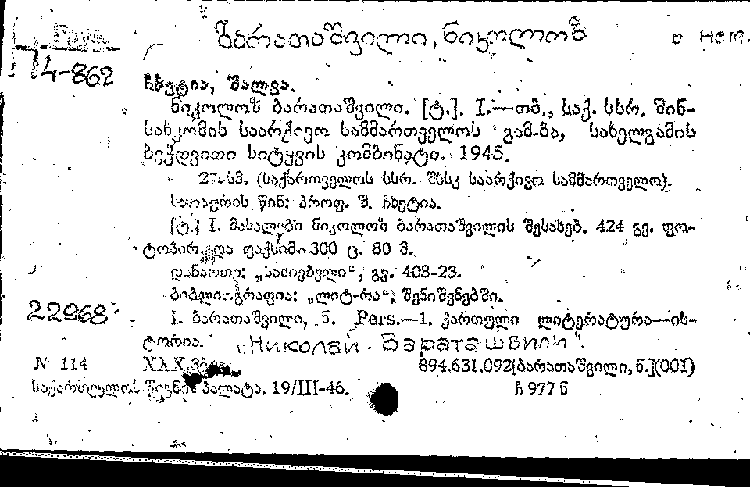 ბარათაშვილი, ნიკოლოზ
14-862
ჩხეტია, შალვა.
ნიკოლოზ ბარათაშვილი. [ტ.]. I.—თბ., საქ. სსრ. შინ-
სახკომის საარქივო სამმართველოს გამ-მა, სახელგამის
ბეჭდვითი სიტყვის კომბინატი. 1945.
27 სმ. (საქართველოს სსრ. შსსკ საარქივო სამმართველო).
სათაურის წინ: პროფ. შ. ჩხეტია.
[ტ.] I. მასალები ნიკოლოზ ბარათაშვილის შესახებ. 424 გვ. ფო-
ტოპირ და ფაქსიმ. 300 ც. 80 მ.
დანართი: „საძიებელი“, გვ. 403-23.
ბიბლიოგრაფია: „ლიტ-რა“, შენიშვნებში.
22968
I. ბარათაშვილი, ნ. Pers.—1. ქართული ლიტერატურა—ის-
ტორია. „Николай Бараташвили“.
№ 114 894.631.092[ბარათაშვილი, ნ.](001)
საქართველოს წიგნის პალატა. 19/III-46. ჩ 977 ნ